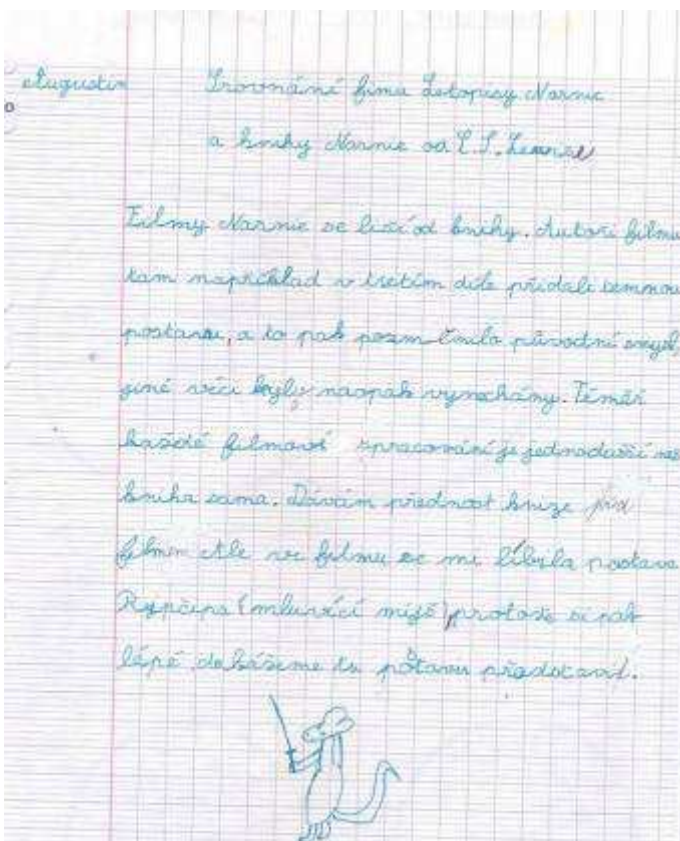 Augustin
Srovnání fimu Letopisy Narnie
a knihy Narnie od C. S. Lewise
Filmy Narnie se liší od knihy. Autoři filmu
tam například v třetím díle přidali temnou
postavu, a to pak pozměnilo původní smysl,
jiné věci byly naopak vynechány. Téměř
každé filmové zpracování je jednodušší než
kniha sama. Dávám přednost knize před
filmem Ale ve filmu se mi líbila postava
Rypčipa (mluvící myš) protože si pak
lépe dokážeme tu postavu představit.